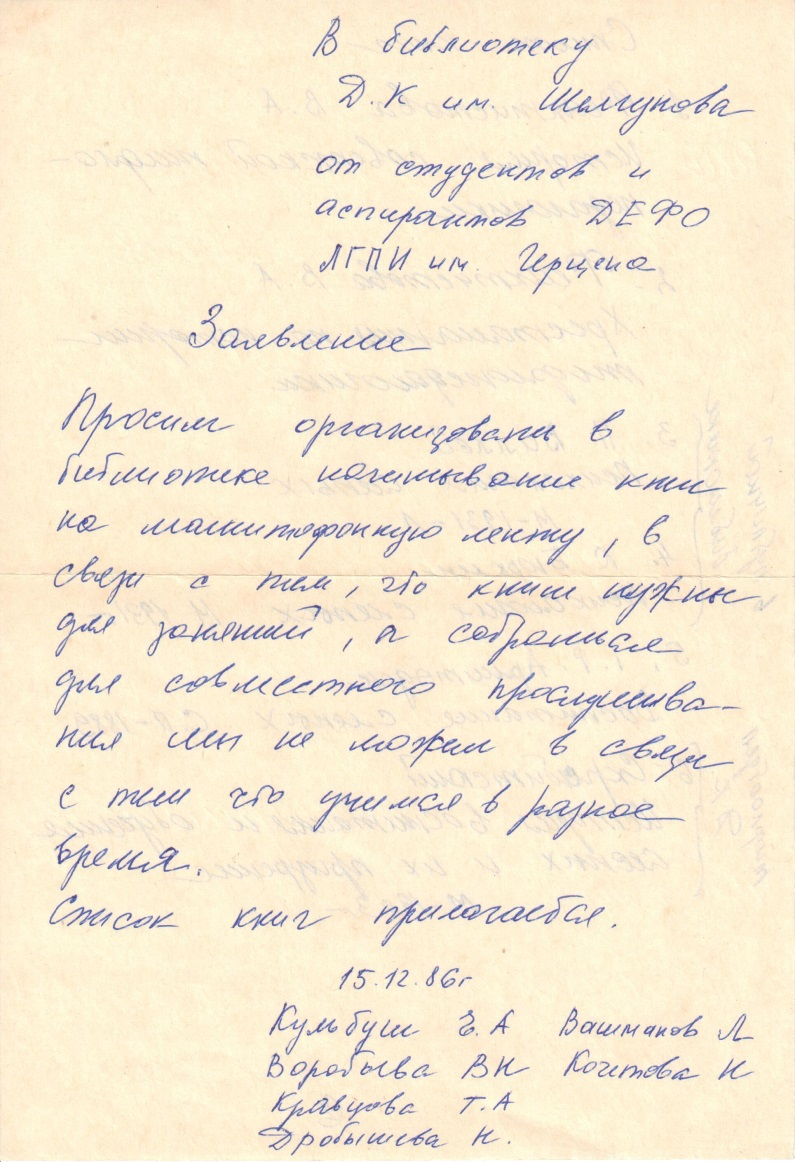 В библиотеку
Д.К им. Шелгунова
от студентов и
аспирантов ДЕФО
ЛГПИ им. Герцена
Заявление
Просим организовать в
библиотеке начитывание книг
на магнитофонную ленту, в
связи с тем, что книги нужны
для занятий, а собраться
для совместного прослушива-
ния мы не можем в связи
с тем что учимся в разное
время.
Список книг прилагается.
15.12.86г
Кульбуш Е.А Вашманов Л
Воробьева ВН Кочетова Н
Кравцова Т.А
Дробышева Н.